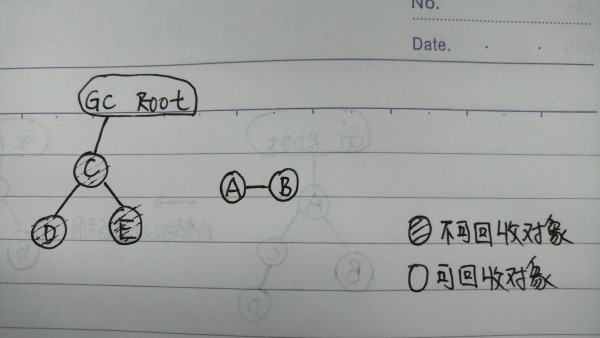 No.
Date.
GC Root
C
A
B
D
E
不可回收对象
可回收对象